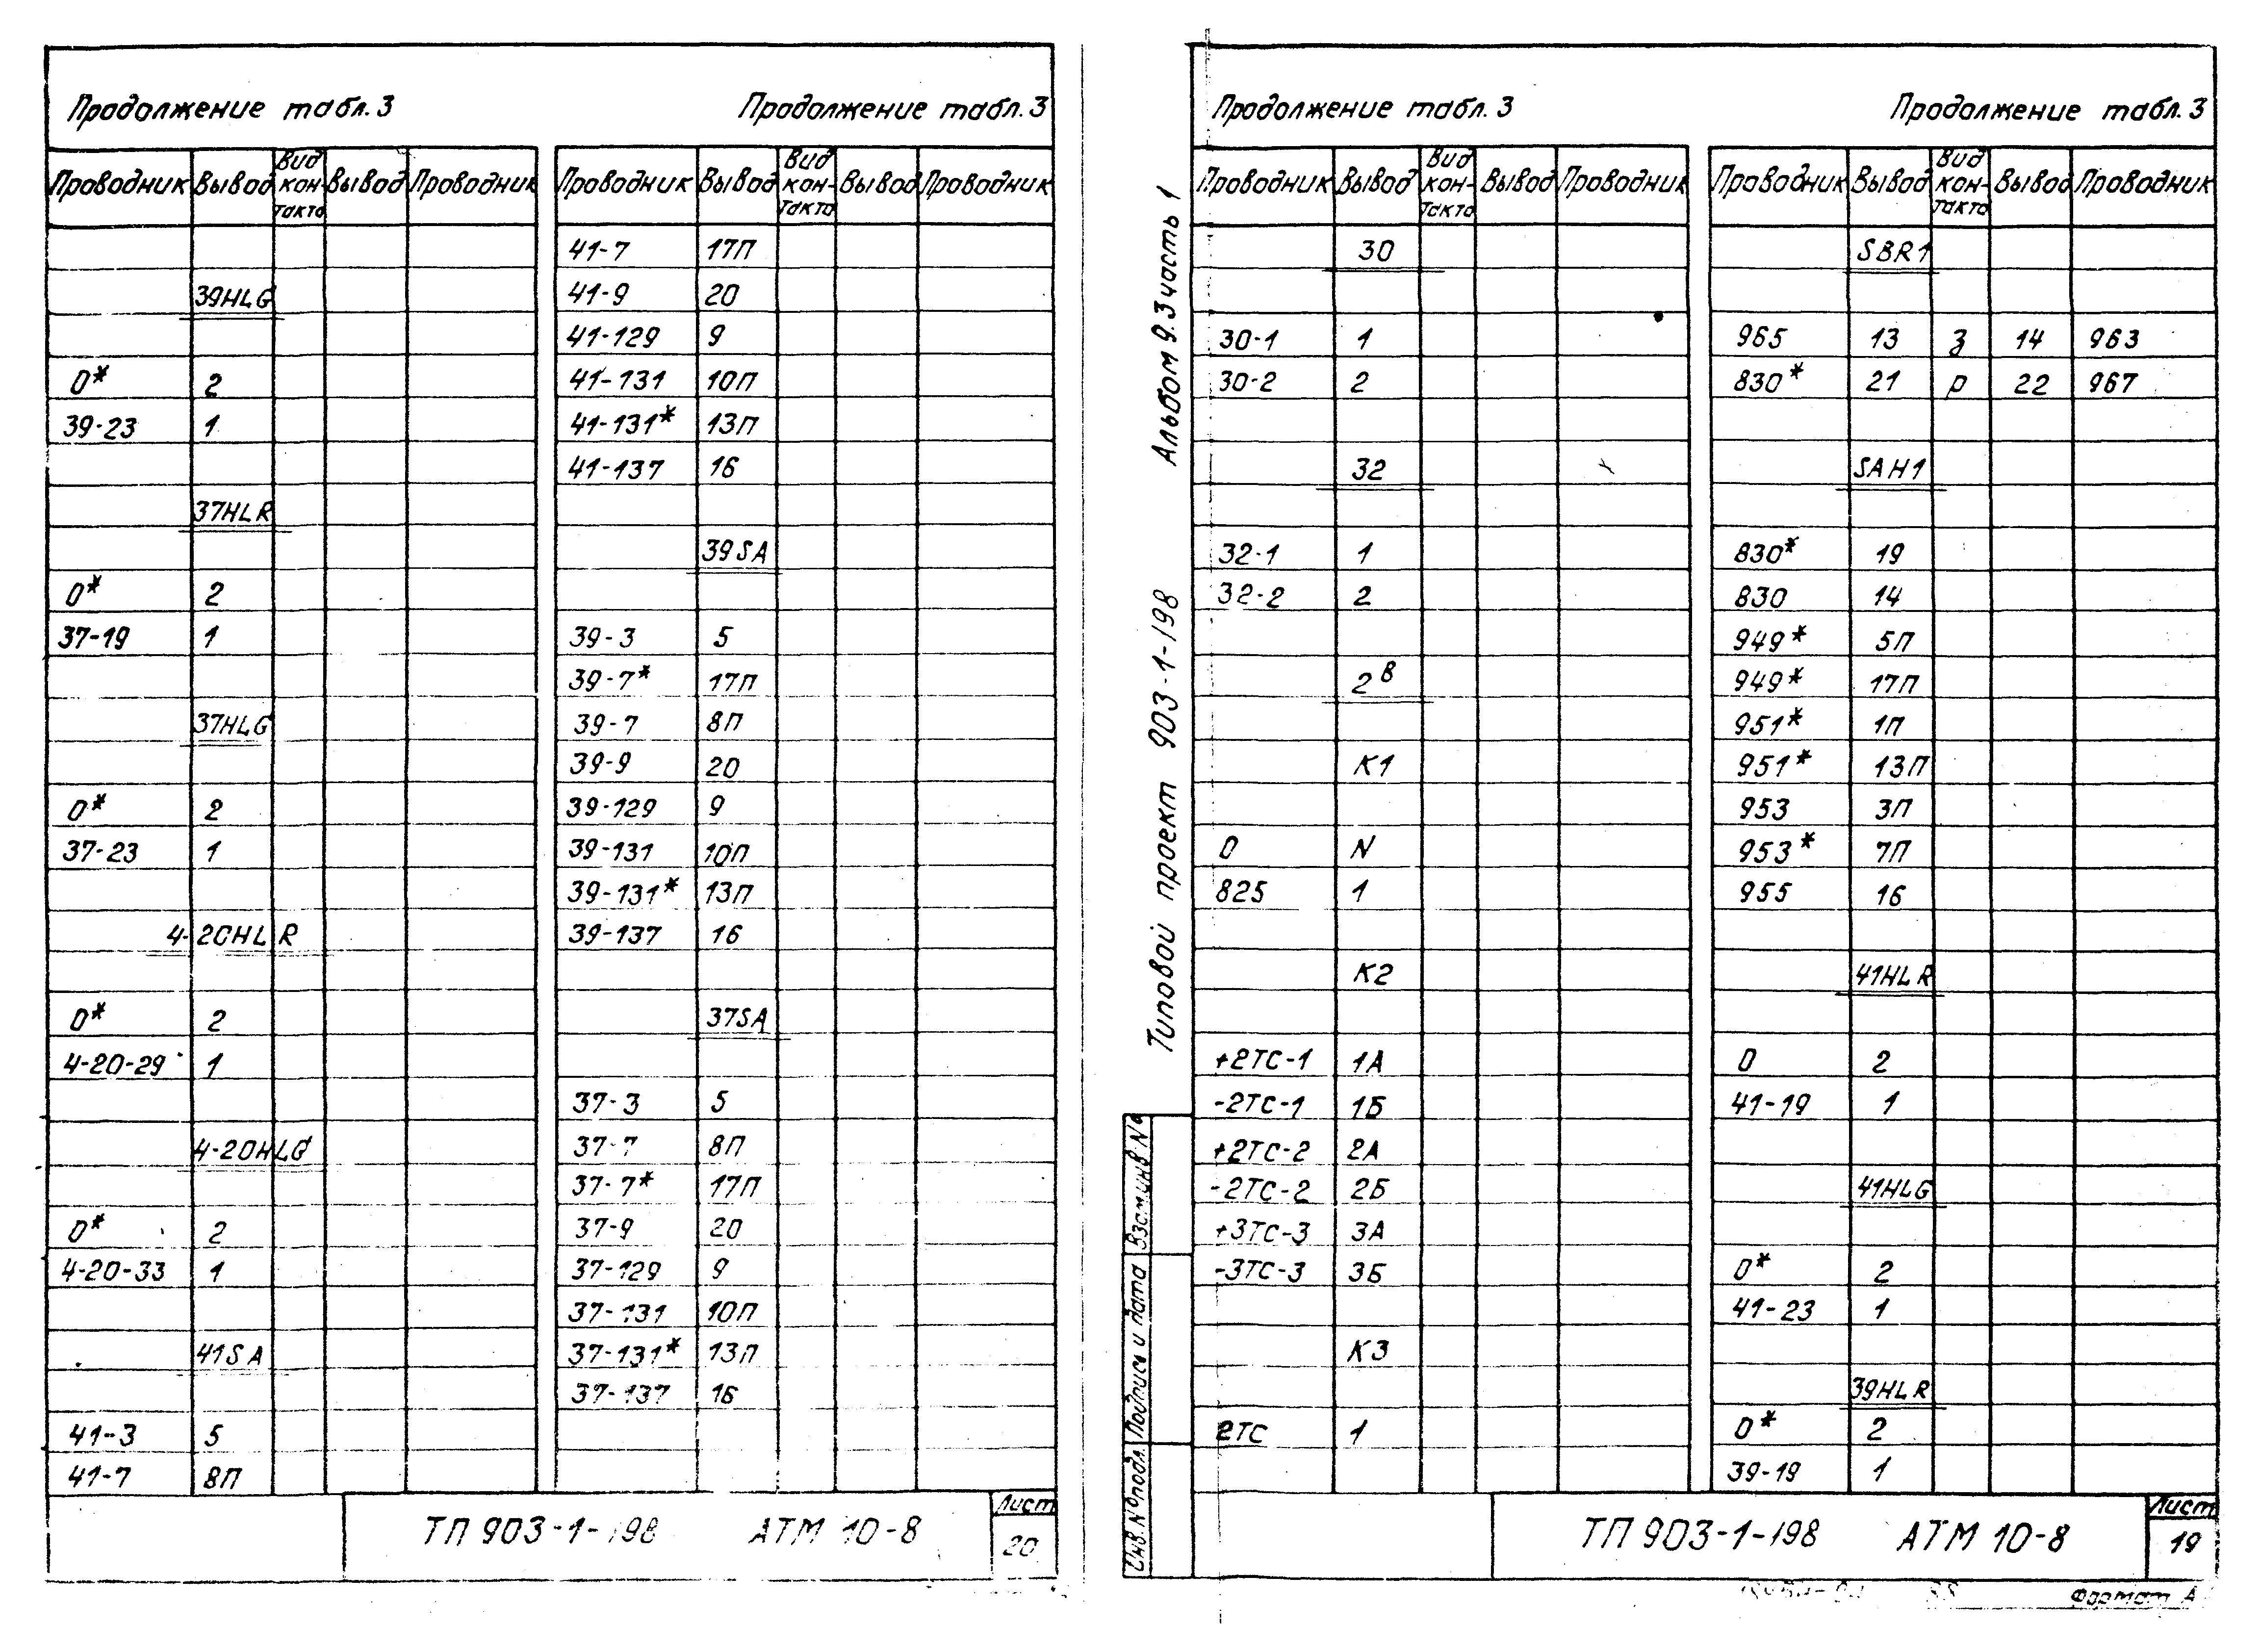 Продолжение табл. 3
Проводник Вывод Вид контакта Вывод Проводник
39HLG
0* 2
39-23 1
37HLR
0* 2
37-19 1
37HLG
0* 2
37-23 1
4-20HLR
0* 2
4-20-29 1
4-20HLG
0* 2
4-20-33 1
41SA
41-3 5
41-7 8П
Продолжение табл. 3
Проводник Вывод Вид контакта Вывод Проводник
41-7 17П
41-9 20
41-129 9
41-131 10П
41-131* 13П
41-137 16
39SA
39-3 5
39-7* 17П
39-7 8П
39-9 20
39-129 9
39-131 10П
39-131* 13П
39-137 16
37SA
37-3 5
37-7 8П
37-7* 17П
37-9 20
37-129 9
37-131 10П
37-131* 13П
37-137 16
ТП 903-1-198 АТМ 10-8
Лист
20
Альбом 9.3 часть 1
Типовой проект 903-1-198
Взам.инв №
Подпись и дата
Инв.№ подл.
Продолжение табл. 3
Проводник Вывод Вид контакта Вывод Проводник
30
30-1 1
30-2 2
32
32-1 1
32-2 2
2В
К1
0 N
825 1
К2
+2ТС-1 1А
-2ТС-1 1Б
+2ТС-2 2А
-2ТС-2 2Б
+3ТС-3 3А
-3ТС-3 3Б
К3
2ТС 1
Продолжение табл. 3
Проводник Вывод Вид контакта Вывод Проводник
SBR1
965 13 з 14 963
830* 21 р 22 967
SAH1
830* 19
830 14
949* 5П
949* 17П
951* 1П
951* 13П
953 3П
953* 7П
955 16
41HLR
0 2
41-19 1
41HLG
0* 2
41-23 1
39HLR
0* 2
39-19 1
ТП 903-1-198 АТМ 10-8
Лист
19
Формат А